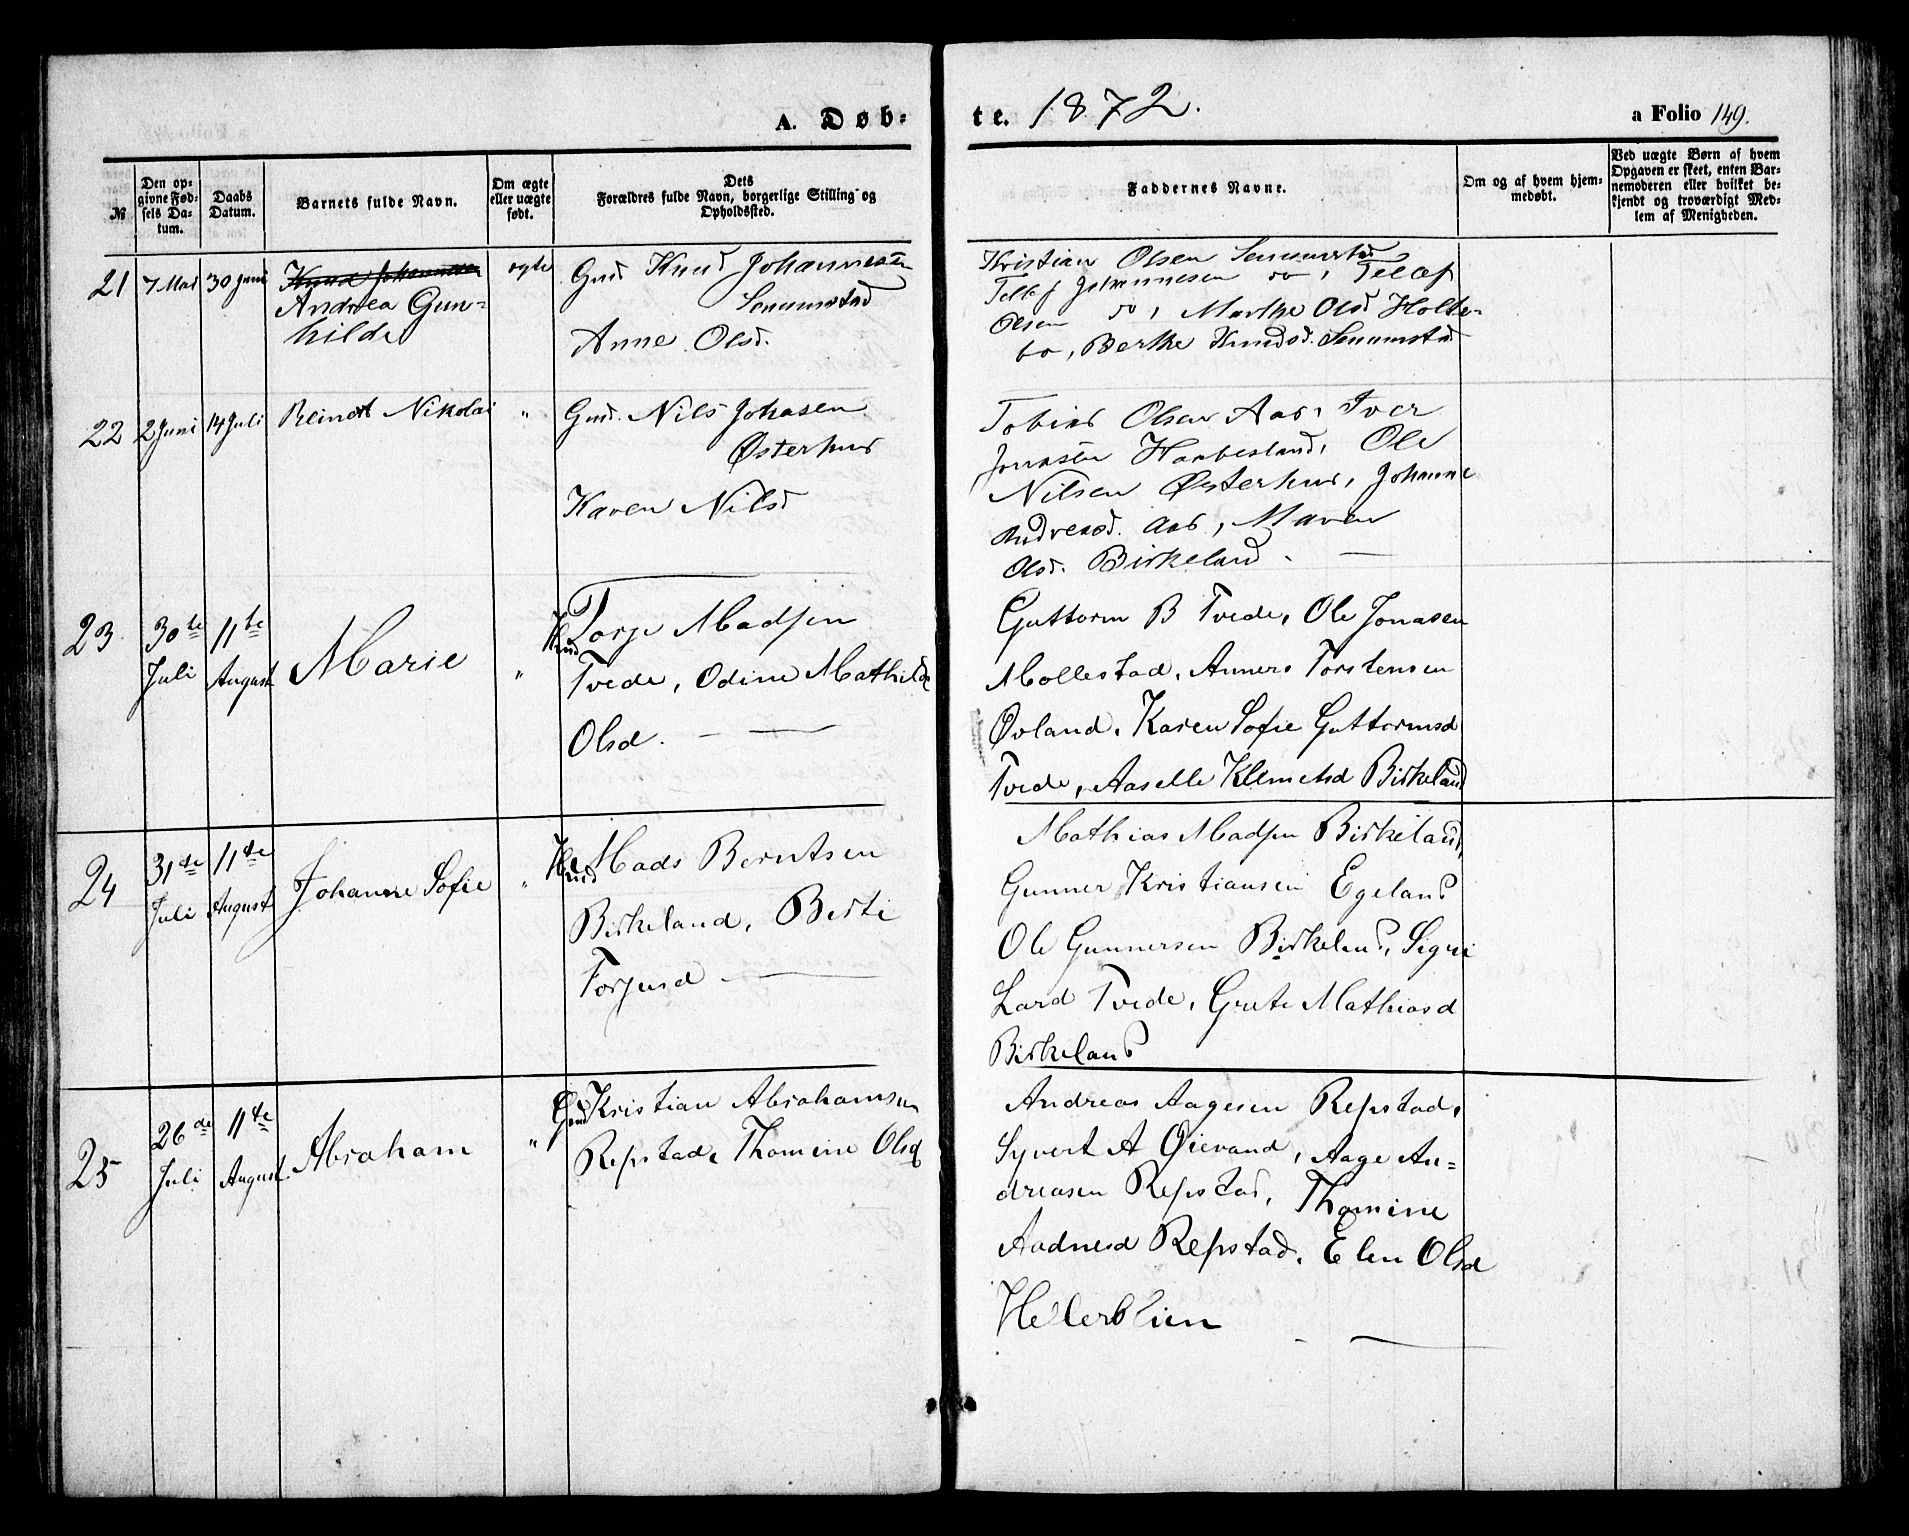 A. Døb-
te. 1872.
a Folio 149.
№
Den op-
givne Fød-
sels Da-
tum.
Daabs
Datum.
Barnets fulde Navn.
Om ægte
eller uægte
født.
Dets
Forældres fulde Navn, borgerlige Stilling og
Opholdssted.
Faddernes Navne.
Om og af hvem hjem-
medøbt.
Ved uægte Børn af hvem
Opgaven er skeet, enten Bar-
nemoderen eller hvilket be-
kjendt og troværdigt Med-
lem af Menigheden.
21 7 Mai 30 Juni
Knud Johannesen
Andrea Gun-
hilde
ægte
Gmd Knud Johannesen
Senumstad
Anne Olsd.
Kristian Olsen Senumstad
Tellef Johannesen do, Tellef
Olsen do, Marthe Olsd Holte-
bo, Berthe Knudsd. Senumstad
22 2 Juni 14 Juli
Reinert Nikolai
"
Gmd. Nils Johasen
Østerhus
Karen Nilsd
Tobias Olsen Aas, Iver
Jonasen Haabesland, Ole
Nilsen Østerhus, Johanne
Andreasd. Aas, Maren
Olsd. Birkeland -
23 30te Juli 11te August
Marie
"
Hmd Torje Madsen
Tvede, Odine Mathilde
Olsd. -
Guttorm B Tvede, Ole Jonasen
Mollestad, Anners Torstensen
Øvland, Karen Sofie Guttormsd
Tvede, Aaselle Klemetsd Birkeland
24 31te Juli 11te August
Johanne Sofie
"
Hmd Mads Berntsen
Birkeland, Berte
Torjusd -
Mathias Madsen Birkeland,
Gunner Kristiansen Egeland
Ole Gunnersen Birkeland, Signe
Larsd Tvede, Grete Mathiasd
Birkeland
25 26de Juli 11te August.
Abraham
"
Gmd Kristian Abrahamsen
Repstad, Thomine Olsd
Andreas Aagesen Repstad,
Syvert A Øievand, Aage An=
dreasen Repstad, Thomine
Aadnesd Repstad, Elen Olsd
Hellerblien -